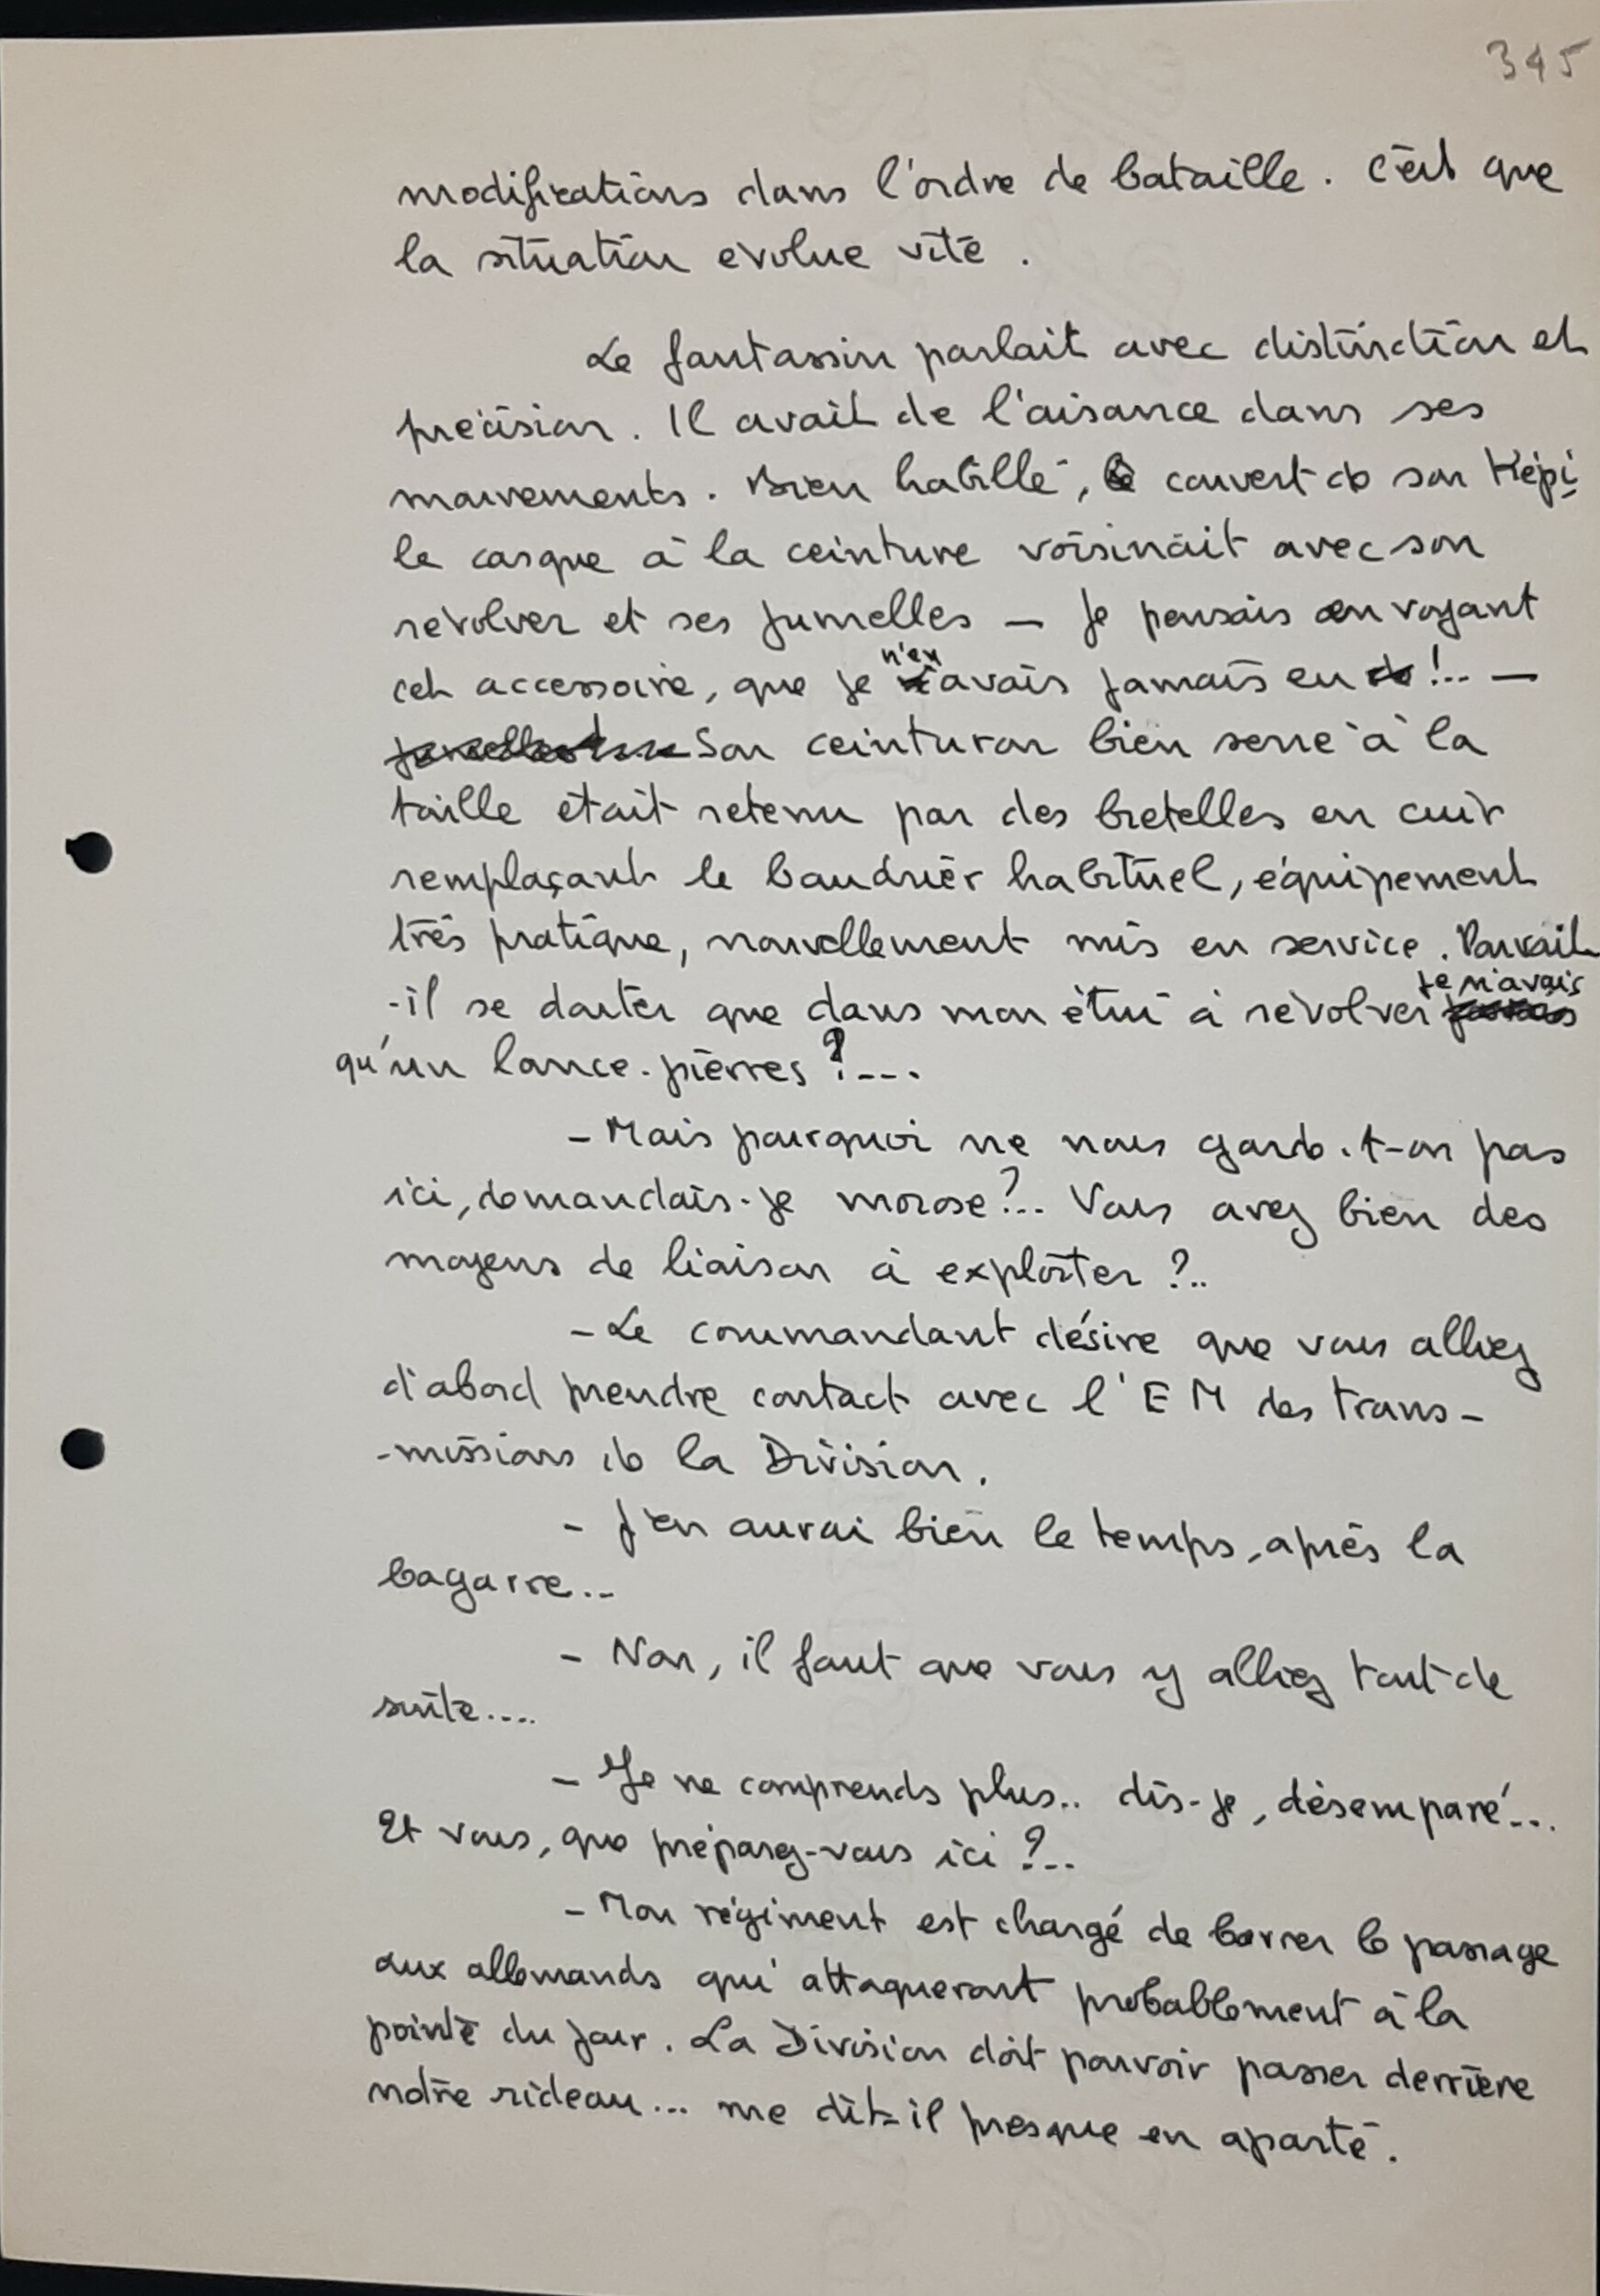 345
modifications dans l'ordre de bataille. C'est que
la situation évolue vite.
Le fantassin parlait avec distinction et
précision. Il avait de l'aisance dans ses
mouvements. Bien habillé, couvert de son Képi
le casque à la ceinture voisinait avec son
révolver et ses jumelles — je pensais en voyant
cet accessoire, que je n'en avais jamais eu !.. —
Son ceinturon bien serré à la
taille était retenu par des bretelles en cuir
remplaçant le baudrier habituel, équipement
très pratique, nouvellement mis en service. Pouvait
-il se douter que dans mon étui à révolver je n'avais
qu'un lance-pierres ?...
- Mais pourquoi ne nous garde-t-on pas
ici, demandais-je morose ?.. Vous avez bien des
moyens de liaison à exploiter ?..
- Le commandant désire que vous alliez
d'abord prendre contact avec l'EM des trans-
-missions de la Division.
- J'en aurai bien le temps, après la
bagarre...
- Non, il faut que vous y alliez tout de
suite....
- Je ne comprends plus.. dis-je, désemparé...
Et vous, que préparez-vous ici ?..
- Mon régiment est chargé de barrer le passage
aux allemands qui attaqueront probablement à la
pointe du jour. La Division doit pouvoir passer derrière
notre rideau... me dit-il presque en aparté.